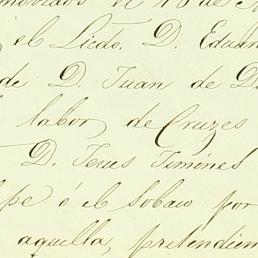 el Licdo. D. Eduar
de D. Juan de D
labor, de Cruzes
D. Jesus Jimenes
ó el Sobaco por
aquella, pretendien